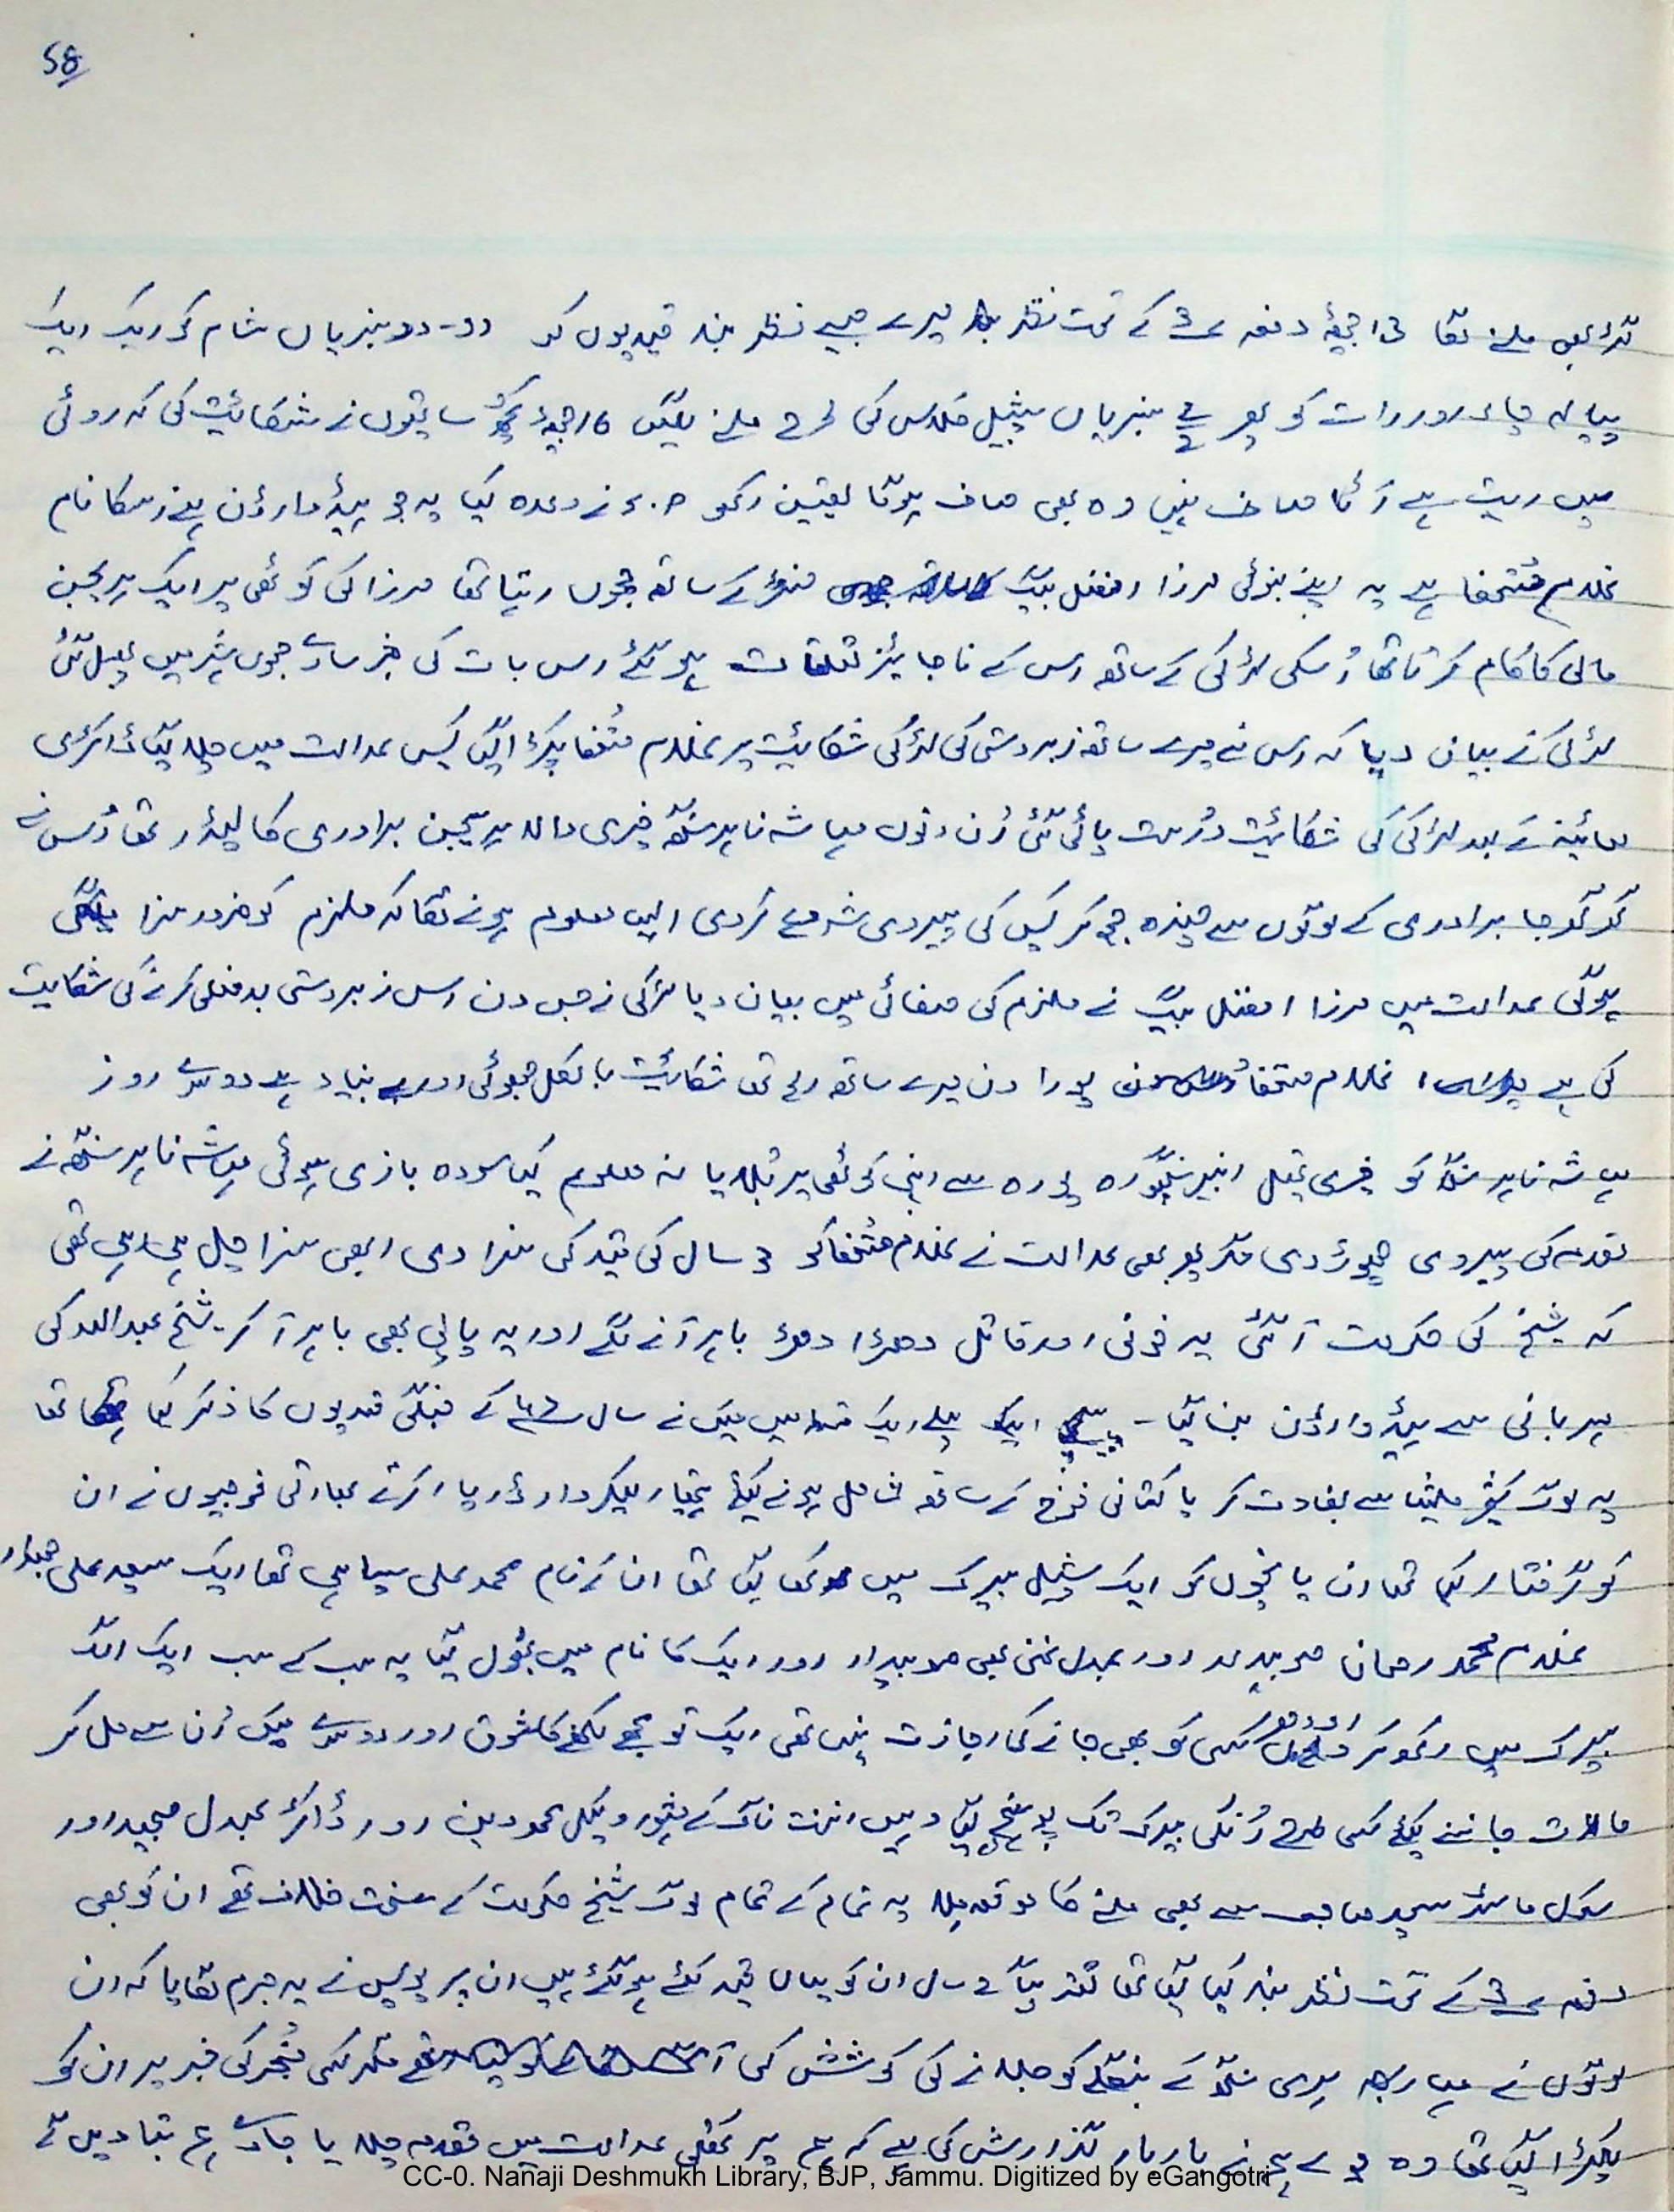 58
گڑ بھی ملنے لگا 13 دفعہ 3 کے تحت نظر بند میرے جیسے نظر بند قیدیوں کو دو-دو سبزیاں شام کو ایک ایک
پیالہ چاے اور رات کو پھر 2 سبزیاں سپیشل کلاس کی طرح ملنے لگیں 16 کچھ ساتھیوں نے شکائیت کی کہ روٹی
میں ریت ہے آٹا صاف نہیں وہ بھی صاف ہوگا یقین رکھو نے وعدہ کیا یہ جو ہیڈ وارڈن ہے اسکا نام
غلام مُتحفا ہے یہ اپنے بہنوئی مرزا افضل بیگ کے ساتھ جموں رہتا تھا مرزا کی کوٹھی پر ایک ہریجن
مالی کا کام کرتا تھا اُسکی لڑکی کے ساتھ اس کے ناجائیز تعلقات ہو گئے اس بات کی خبر سارے جموں شہر میں پھیل گئی
لڑکی نے بیان دیا کہ اس نے میرے ساتھ زبردستی کی لڑکی کی شکائیت پر غلام مُتحفا پکڑا گیا کیس عدالت میں چلا گیا ڈاکٹری
معائینہ کے بعد لڑکی کی شکائیت دُرست پائی گئی اُن دنوں مہاشہ ناہر سنگھ والا ہریجن برادری کا لیڈر تھا اُس نے
گھر گھر جا برادری کے لوگوں سے چندہ جمع کر کیس کی پیروی شروع کر دی ایسا معلوم ہونے لگا کہ ملزم کو ضرور سزا
ہوگی عدالت میں مرزا افضل بیگ نے ملزم کی صفائی میں بیان دیا لڑکی نے جس دن اس زبردستی بدفعلی کرنے کی شکایت
کی ہے غلام متحفا پورا دن میرے ساتھ رہا تھا شکائیت بالکل جھوٹی اور بے بنیاد ہے دوسرے روز
مہاشہ ناہر سنگھ کو سے اپنی کوٹھی پر بُلایا نہ معلوم کیا سودہ بازی ہوئی مہاشہ ناہر سنگھ نے
مقدمہ کی پیروی چھوڑ دی مگر پھر بھی عدالت نے غلام مُتحفا کو 3 سال کی قید کی سزا دی ابھی سزا چل ہی رہی تھی
کہ شیخ کی حکومت آ گئی ہر خونی اور قاتل دھڑا دھڑ باہر آنے لگے اور یہ پاپی بھی باہر آ کر شیخ عبدالله کی
مہربانی سے ہیڈ وارڈن بن گیا - پہلے ایک میں میں نے سال کے جنگی قیدیوں کا ذکر کیا تھا
یہ لوگ ملیشیا سے بغاوت کر پاکستانی فوج کے ساتھ شامل ہونے کیلئے ہتھیار لیکر بارڈر پار کرتے بھارتی فوجیوں نے ان
کو گرفتار کیا تھا ان پانچوں کو ایک سپیشل بیرک میں رکھا گیا تھا ان کے نام محمد علی سپاہی تھا ایک سید علی حولدار
غلام محمد رحمان صوبیدار اور عبدل غنی بھی صوبیدار اور ایک کا نام میں بھول گیا یہ سب کے سب ایک الگ
بیرک میں رکھ کر کسی کو بھی جانے کی اجازت نہیں تھی ایک تو مجھے لکھنے کا شوق اور دوسرے میں اُن سے مل کر
حالات جاننے کیلئے کسی طرح اُنکی بیرک تک پہنچ گیا وہیں اننت ناگ کے مشہور وکیل اور ڈاکٹر عبدل مجید اور
سکول ماسٹر صاحب سے بھی ملنے کا موقعہ ملا یہ تمام کے تمام لوگ شیخ حکومت کے سخت خلاف تھے ان کو بھی
دفعہ 3 کے تحت نظر بند کیا گیا تھا تقریباً 2 سال ان کو یہاں قید کئے ہو گئے ہیں ان پر پولیس نے یہ جرم لگایا کہ ان
لوگوں نے مہاراجہ ہری سنگھ کے بنگلے کو جلانے کی کوشش کی مگر کسی مُخبر کی خبر پر ان کو
پکڑا گیا تھا وہ ہم نے بار بار گذارش کی ہے کہ ہم پر کُھلی عدالت میں مقدمہ چلایا جاے ہم بتا دیں گے
CC-0. Nanaji Deshmukh Library, BJP, Jammu. Digitized by eGangotri